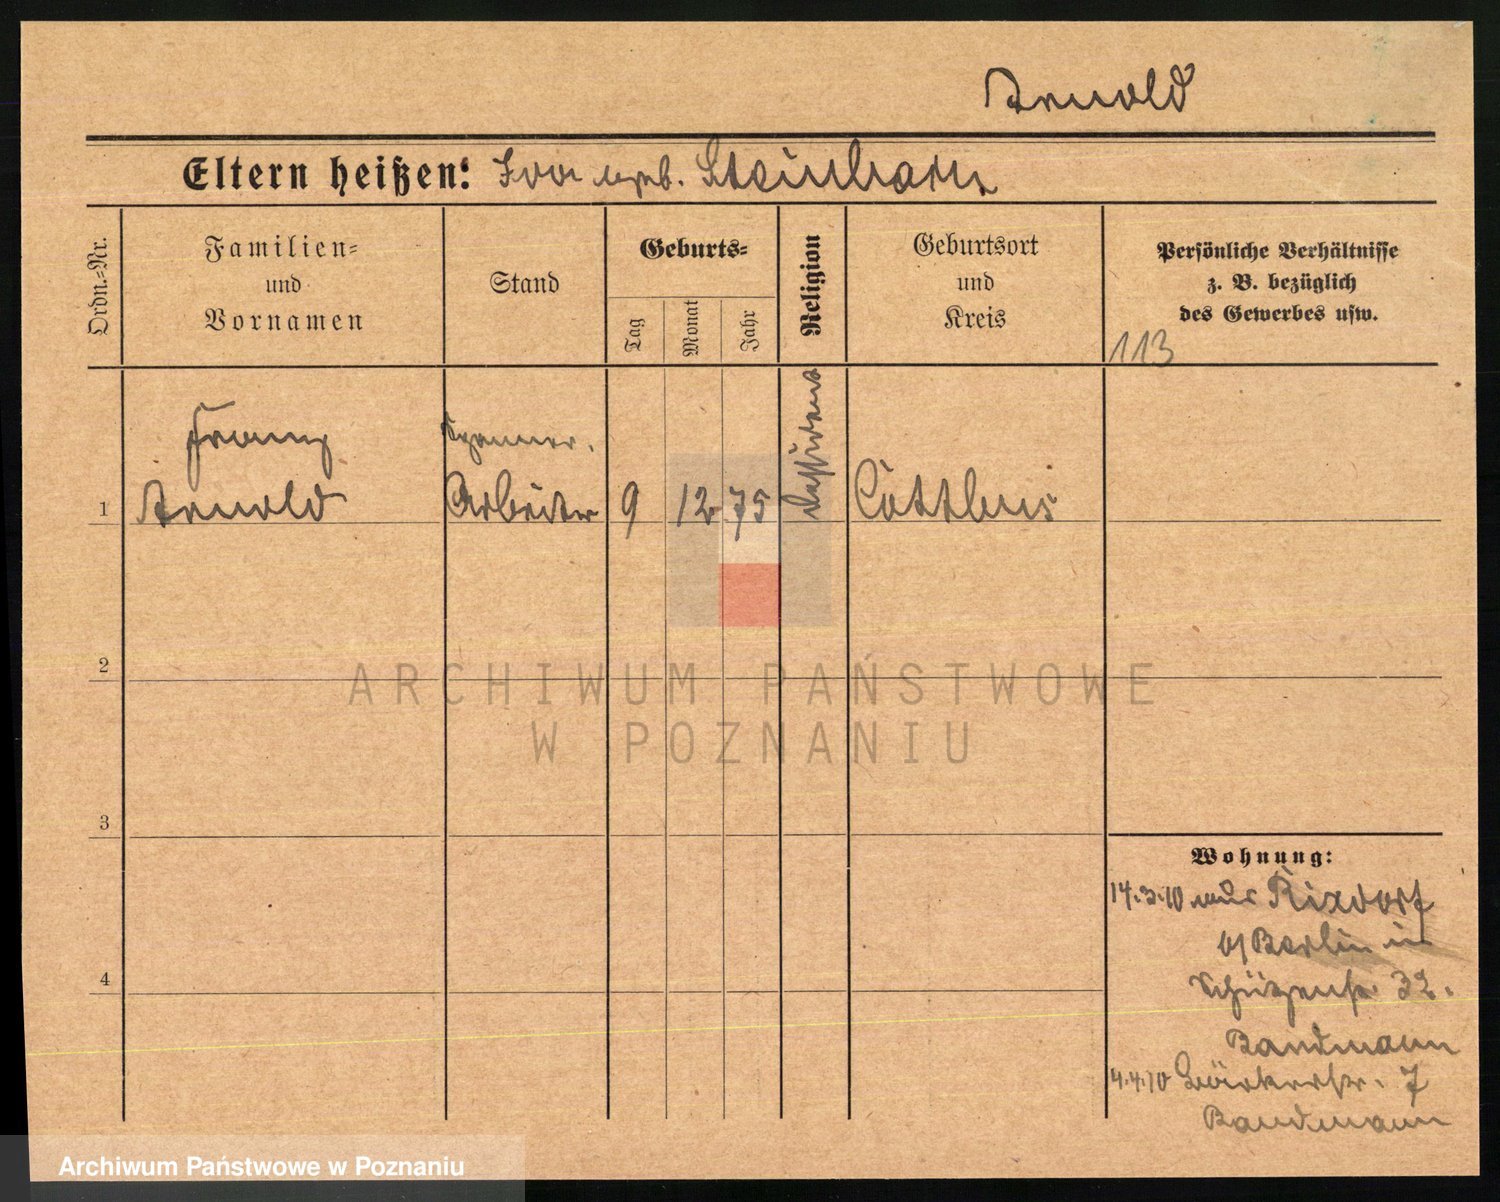 Arnold
Eltern heißen: geb. Steinhorn
Ordn.=Nr.
Familien=
und
Vornamen
Stand
Geburts=
Tag
Monat
Jahr
Religion
Geburtsort
und
Kreis
Persönliche Verhältnisse
z. B. bezüglich
des Gewerbes usw.
113
Franz
1 Arnold Arbeiter 9 12 75 Dissident Cottbus
2
3
4
ARCHIWUM PAŃSTWOWE
W POZNANIU
Wohnung:
14.3.10 aus Rixdorf
b/Berlin in
Schützenstr 32.
Bandmann
4.4.10 Bäckerstr. 7
Bandmann
Archiwum Państwowe w Poznaniu